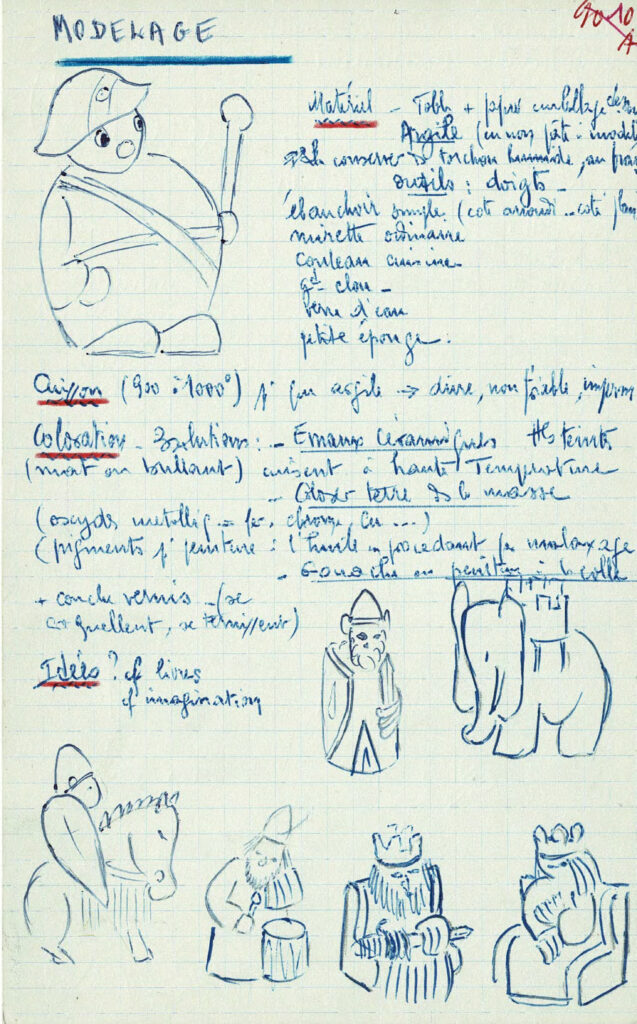 MODELAGE
90 10
A
Matériel - Table + papier emballage
Argile (ou non pâte à model
conserver ds torchon humide, au frais
outils : doigts -
ébauchoir simple (coté arrondi - coté
mirette ordinaire
couteau cuisine
gd clou -
verre d'eau
petite éponge.
Cuisson (900 à 1000°) pr argile → dure, non friable,
Coloration - 3 solutions : - Emaux Céramiques teints
(mat ou brillant) cuisent à haute Température
- terre ds la masse
(oxydes metalliq fer, chrome, Cu ....)
(pigments pr peinture à l'huile en procédant par malaxage
- Gouache ou peinture à la colle
+ couche vernis - (se
craquellent, se ternissent)
Idées ? cf livres
cf imagination